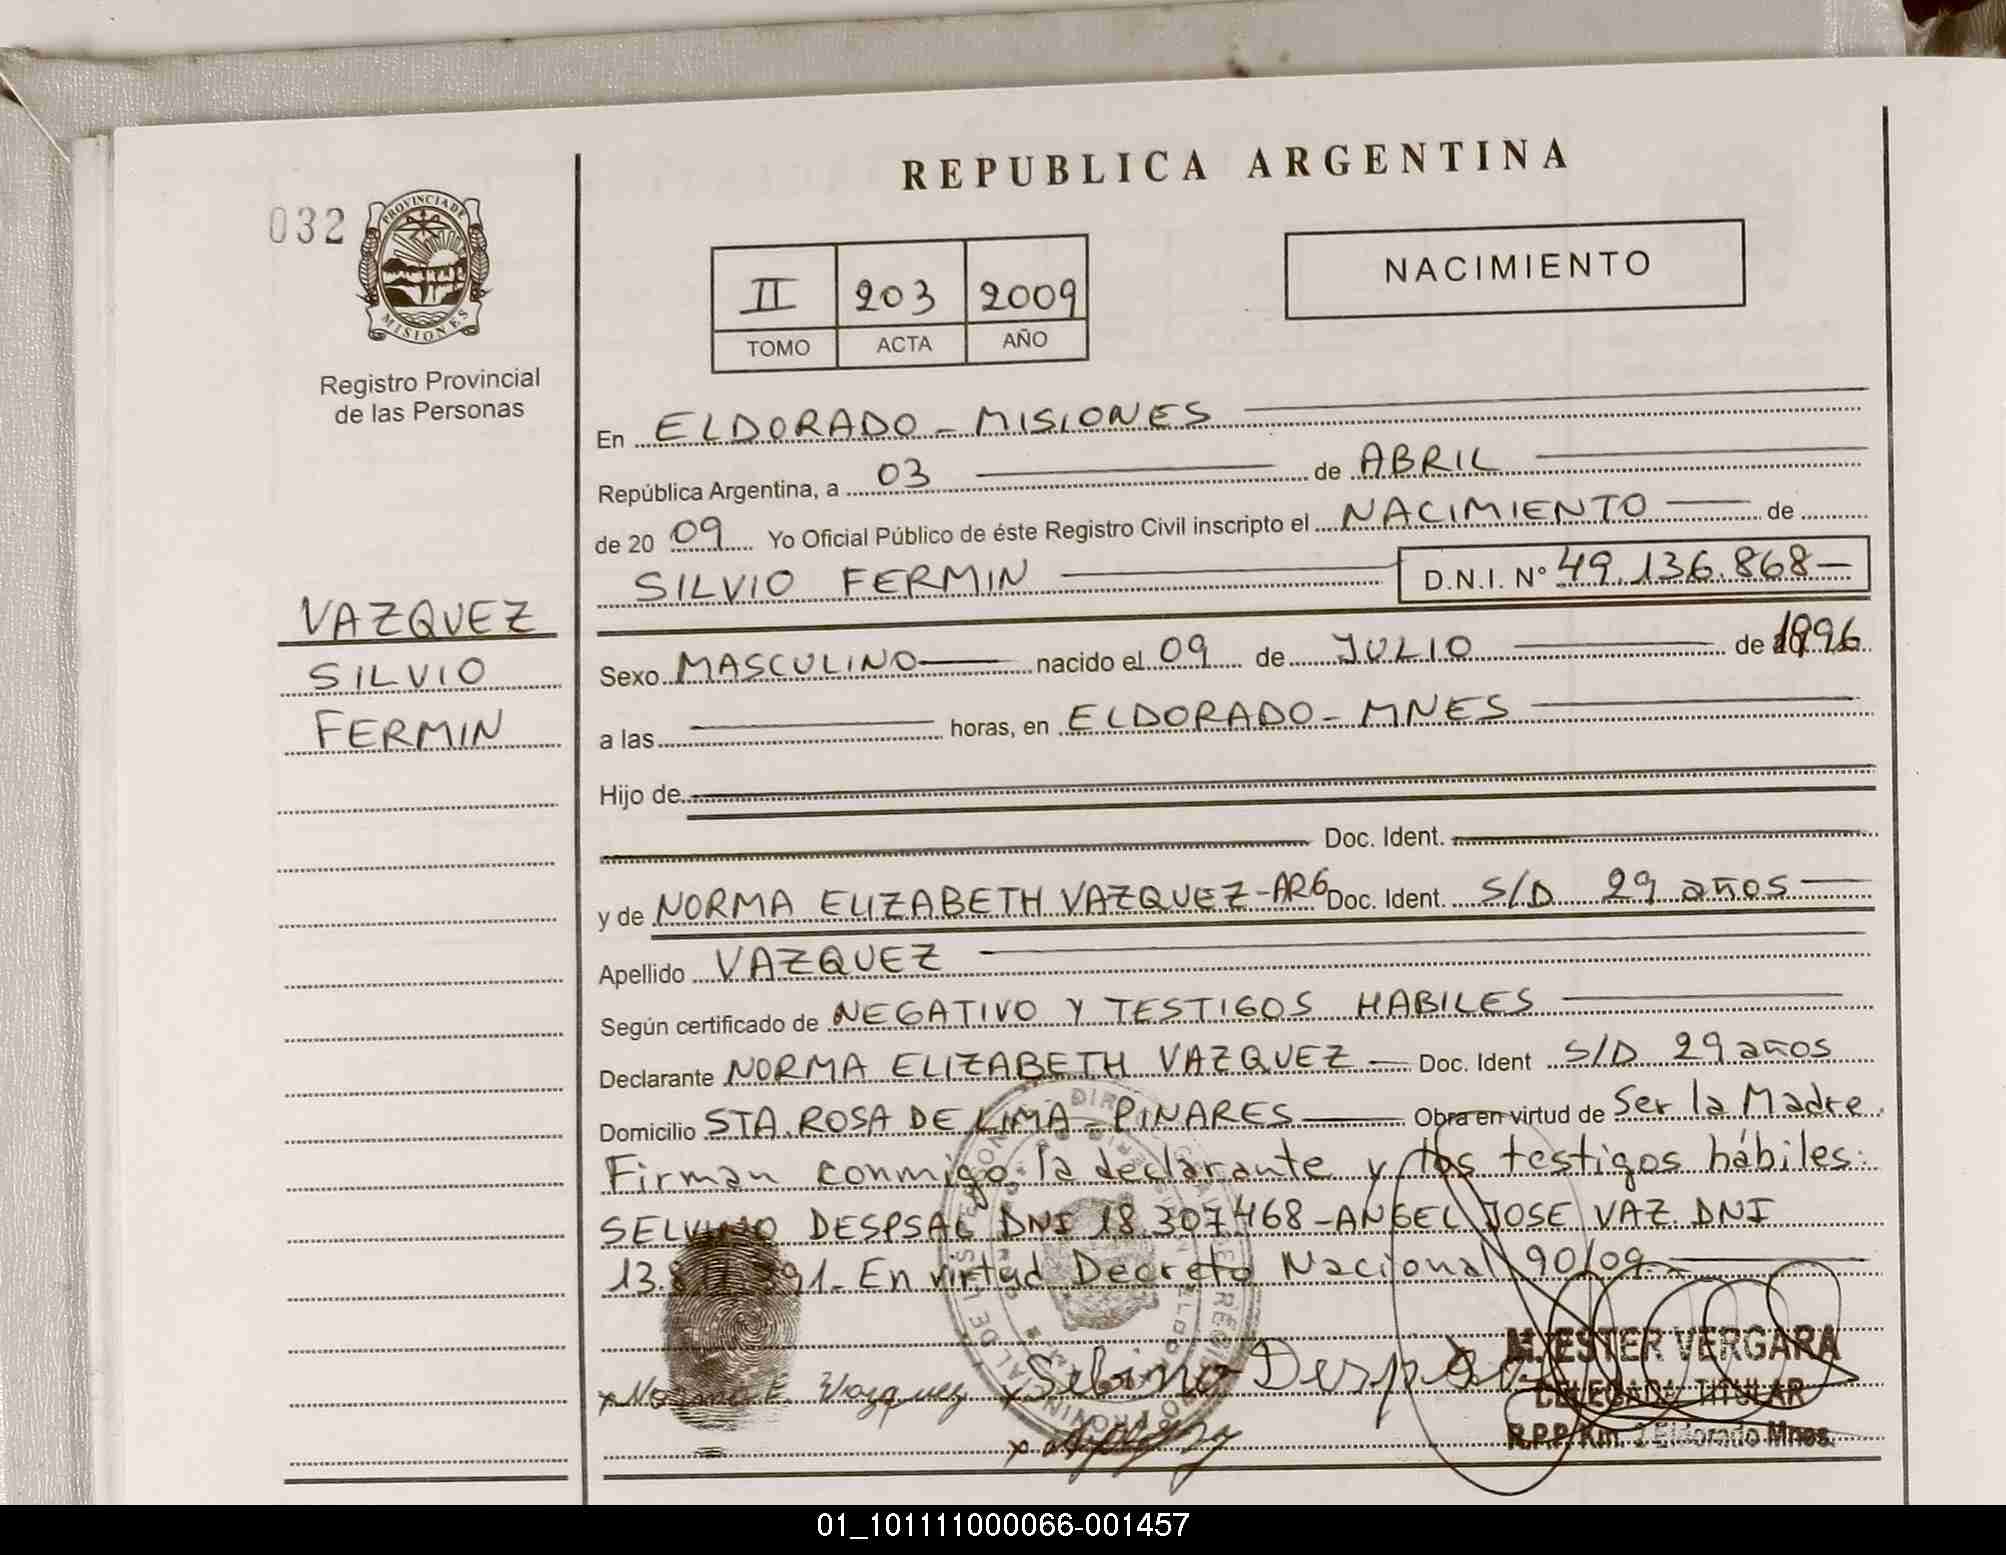 REPUBLICA ARGENTINA
032
PROVINCIA DE
MISIONES
Registro Provincial
de las Personas
II 203 2009
TOMO ACTA AÑO
NACIMIENTO
En ELDORADO - MISIONES
República Argentina, a 03 de ABRIL
de 20 09 Yo Oficial Público de éste Registro Civil inscripto el NACIMIENTO de
SILVIO FERMIN D.N.I. N° 49.136.868
VAZQUEZ
SILVIO
FERMIN
Sexo MASCULINO nacido el 09 de JULIO de 1996
a las horas, en ELDORADO - MNES
Hijo de
Doc. Ident.
y de NORMA ELIZABETH VAZQUEZ - ARG Doc. Ident. S/D 29 años
Apellido VAZQUEZ
Según certificado de NEGATIVO Y TESTIGOS HABILES
Declarante NORMA ELIZABETH VAZQUEZ Doc. Ident S/D 29 años
Domicilio STA. ROSA DE LIMA - PINARES Obra en virtud de Ser la Madre.
Firman conmigo, la declarante y los testigos hábiles:
SELVINO DESPSAL DNI 18.307.468 - ANGEL JOSE VAZ DNI
13. 391 - En virtud Decreto Nacional 90/09
x Vazquez x Selvino
M. ESTER VERGARA
DELEGADA TITULAR
R.P.P. Km. Eldorado Mnes.
01_101111000066-001457